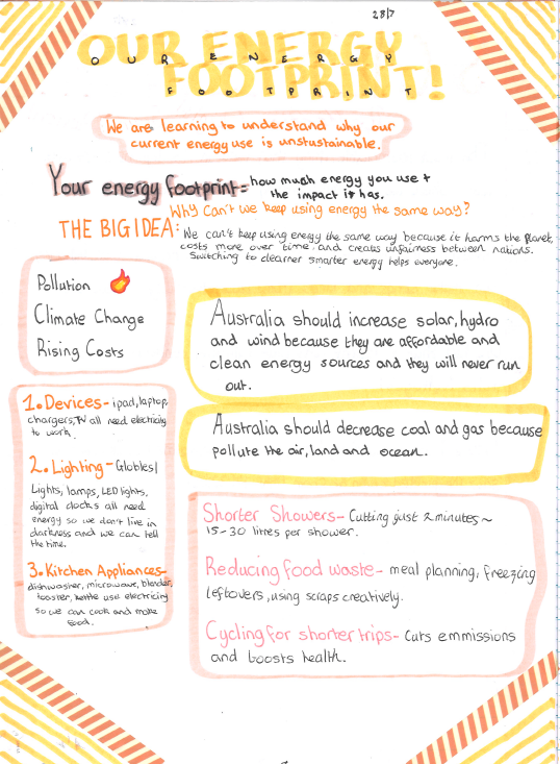 28/7
OUR ENERGY
FOOTPRINT!
OUR ENERGY
FOOTPRINT
We are learning to understand why our
current energy use is unstustainable.
Your energy footprint= how much energy you use +
the impact it has.
Why can't we keep using energy the same way?
THE BIG IDEA: We can't keep using energy the same way because it harms the planet,
costs more over time, and creates unfairness between nations.
Switching to clearner smarter energy helps everyone.
Pollution
Climate Change
Rising Costs
Australia should increase solar, hydro
and wind because they are affordable and
clean energy sources and they will never run
out.
Australia should decrease coal and gas because
pollute the air, land and ocean.
1. Devices- ipad, laptop,
chargers, TV all need electricity
to work.
2. Lighting- Globles/
Lights, lamps, LED lights,
digital clocks all need
energy so we don't live in
darkness and we can tell
the time.
3. Kitchen Appliances-
dishwasher, microwave, blender,
toaster, kettle use electricity
so we can cook and make
food.
Shorter Showers- Cutting just 2 minutes ~
15-30 litres per shower.
Reducing food waste- meal planning, freezing
leftovers, using scraps creatively.
Cycling for shorter trips- Cuts emmissions
and boosts health.